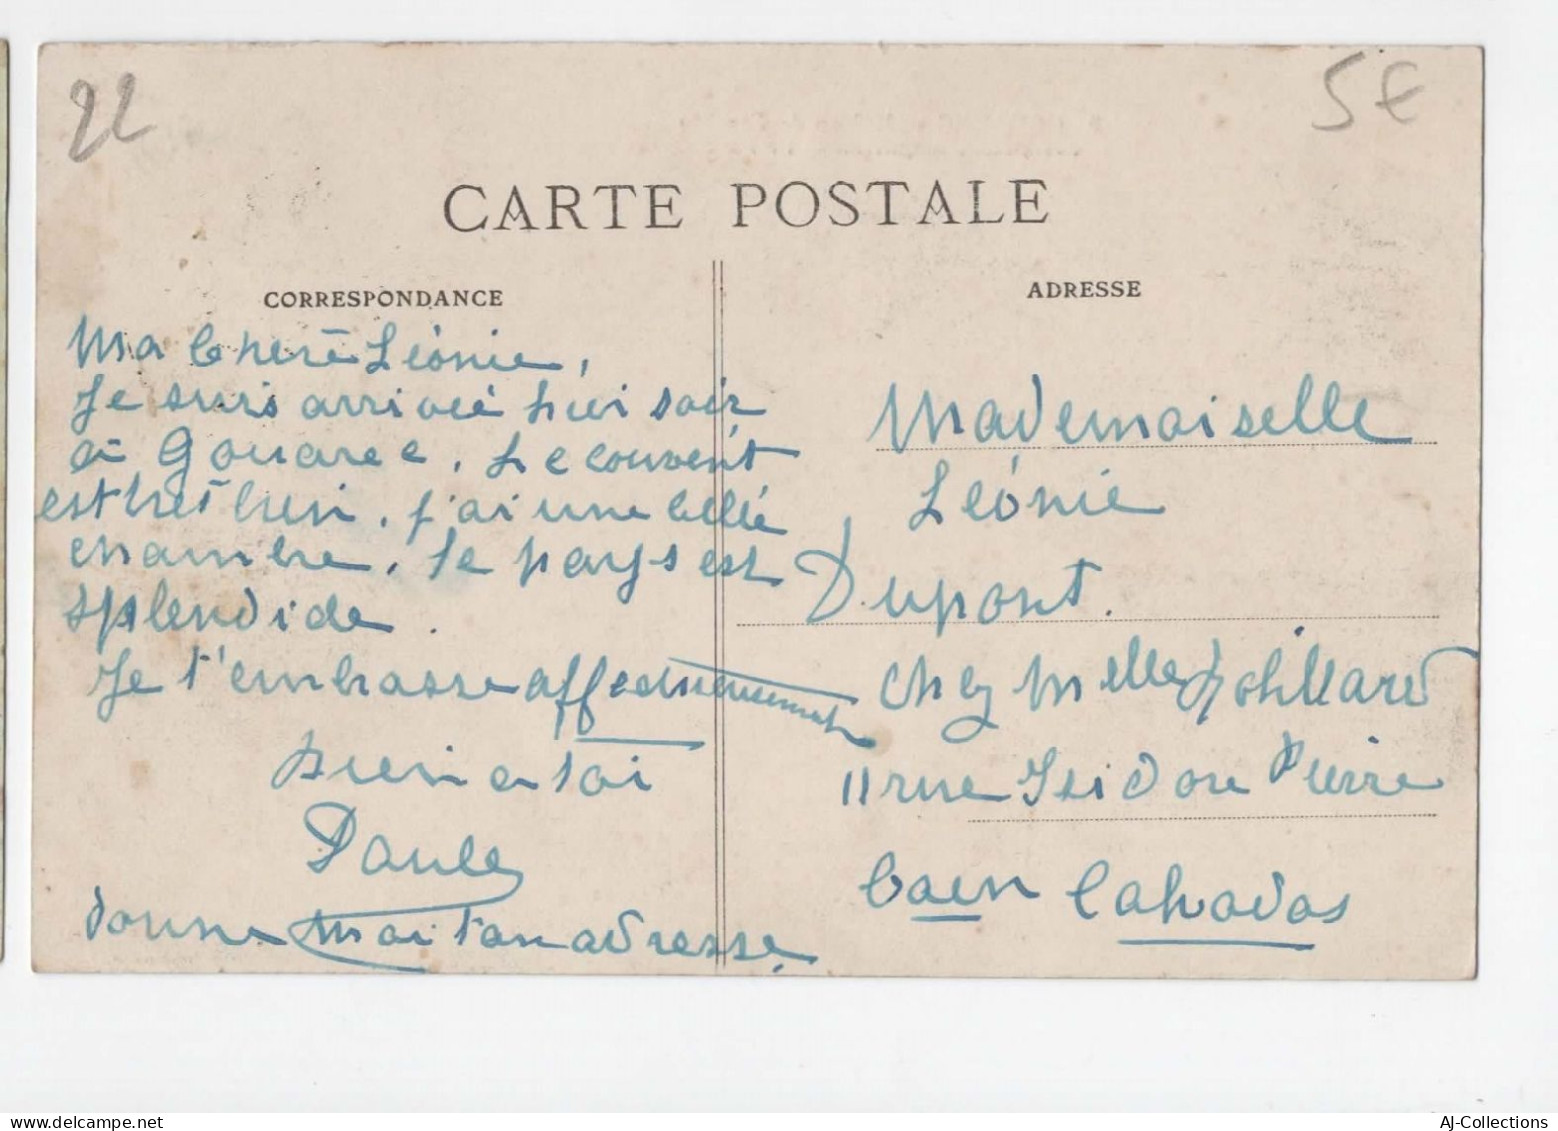 22
5€
CARTE POSTALE
CORRESPONDANCE
Ma chère Léonie,
Je suis arrivée hier soir
à Gouarec. Le couvent
est très bien, j'ai une belle
chambre, le pays est
splendide.
Je t'embrasse affectueusement
bien a toi
Paule
donne moi ton adresse.
ADRESSE
Mademoiselle
Léonie
Dupont.
chez Melle
11 rue Isidore Pierre
Caen Calvados
AJ-Collections